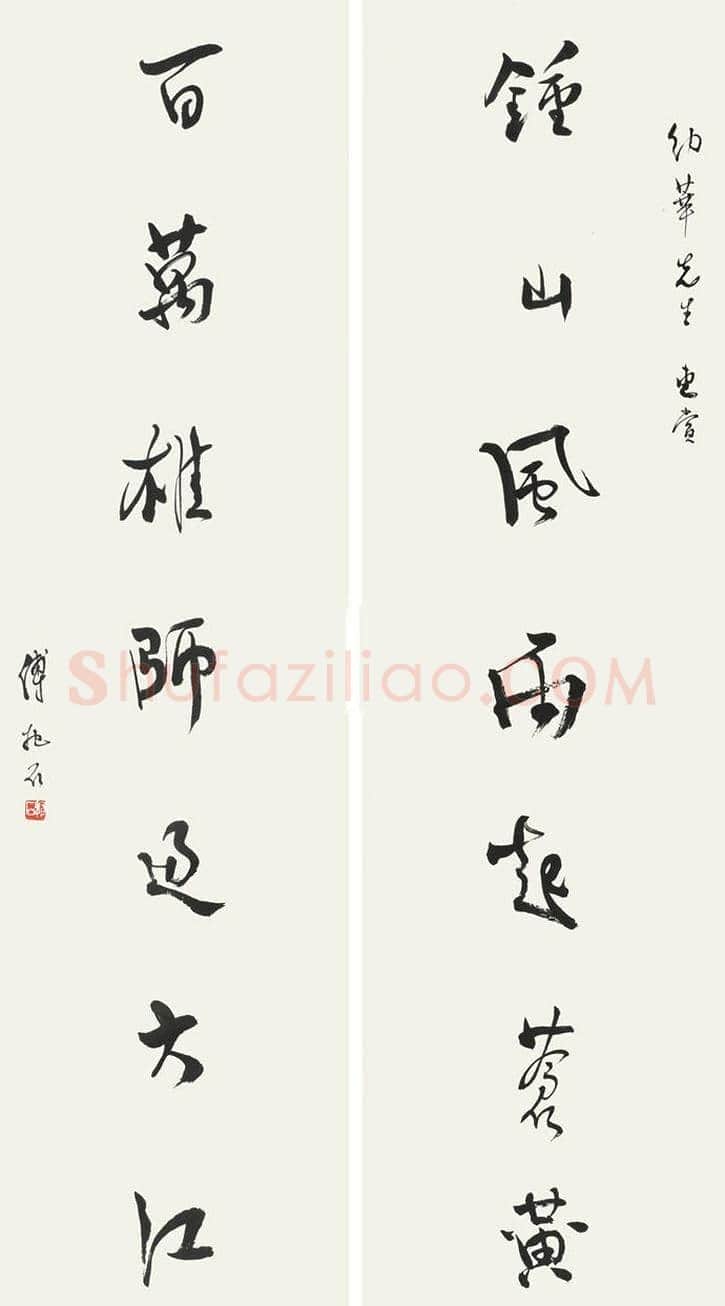 幼華先生 惠賞
鍾山風雨起蒼黃
百萬雄師過大江
傅抱石
Shufaziliao.COM